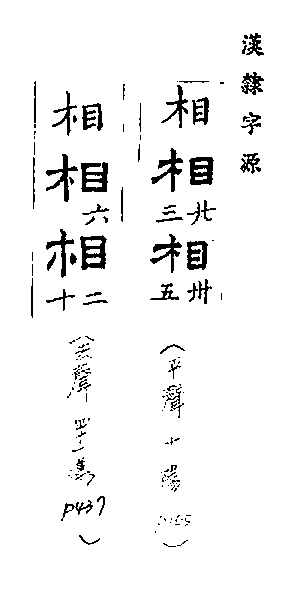 漢隸字源
相
相
廿三
相
卅五
(平聲十陽
相
相
六
相
二十
(去聲四十一漾 P437)